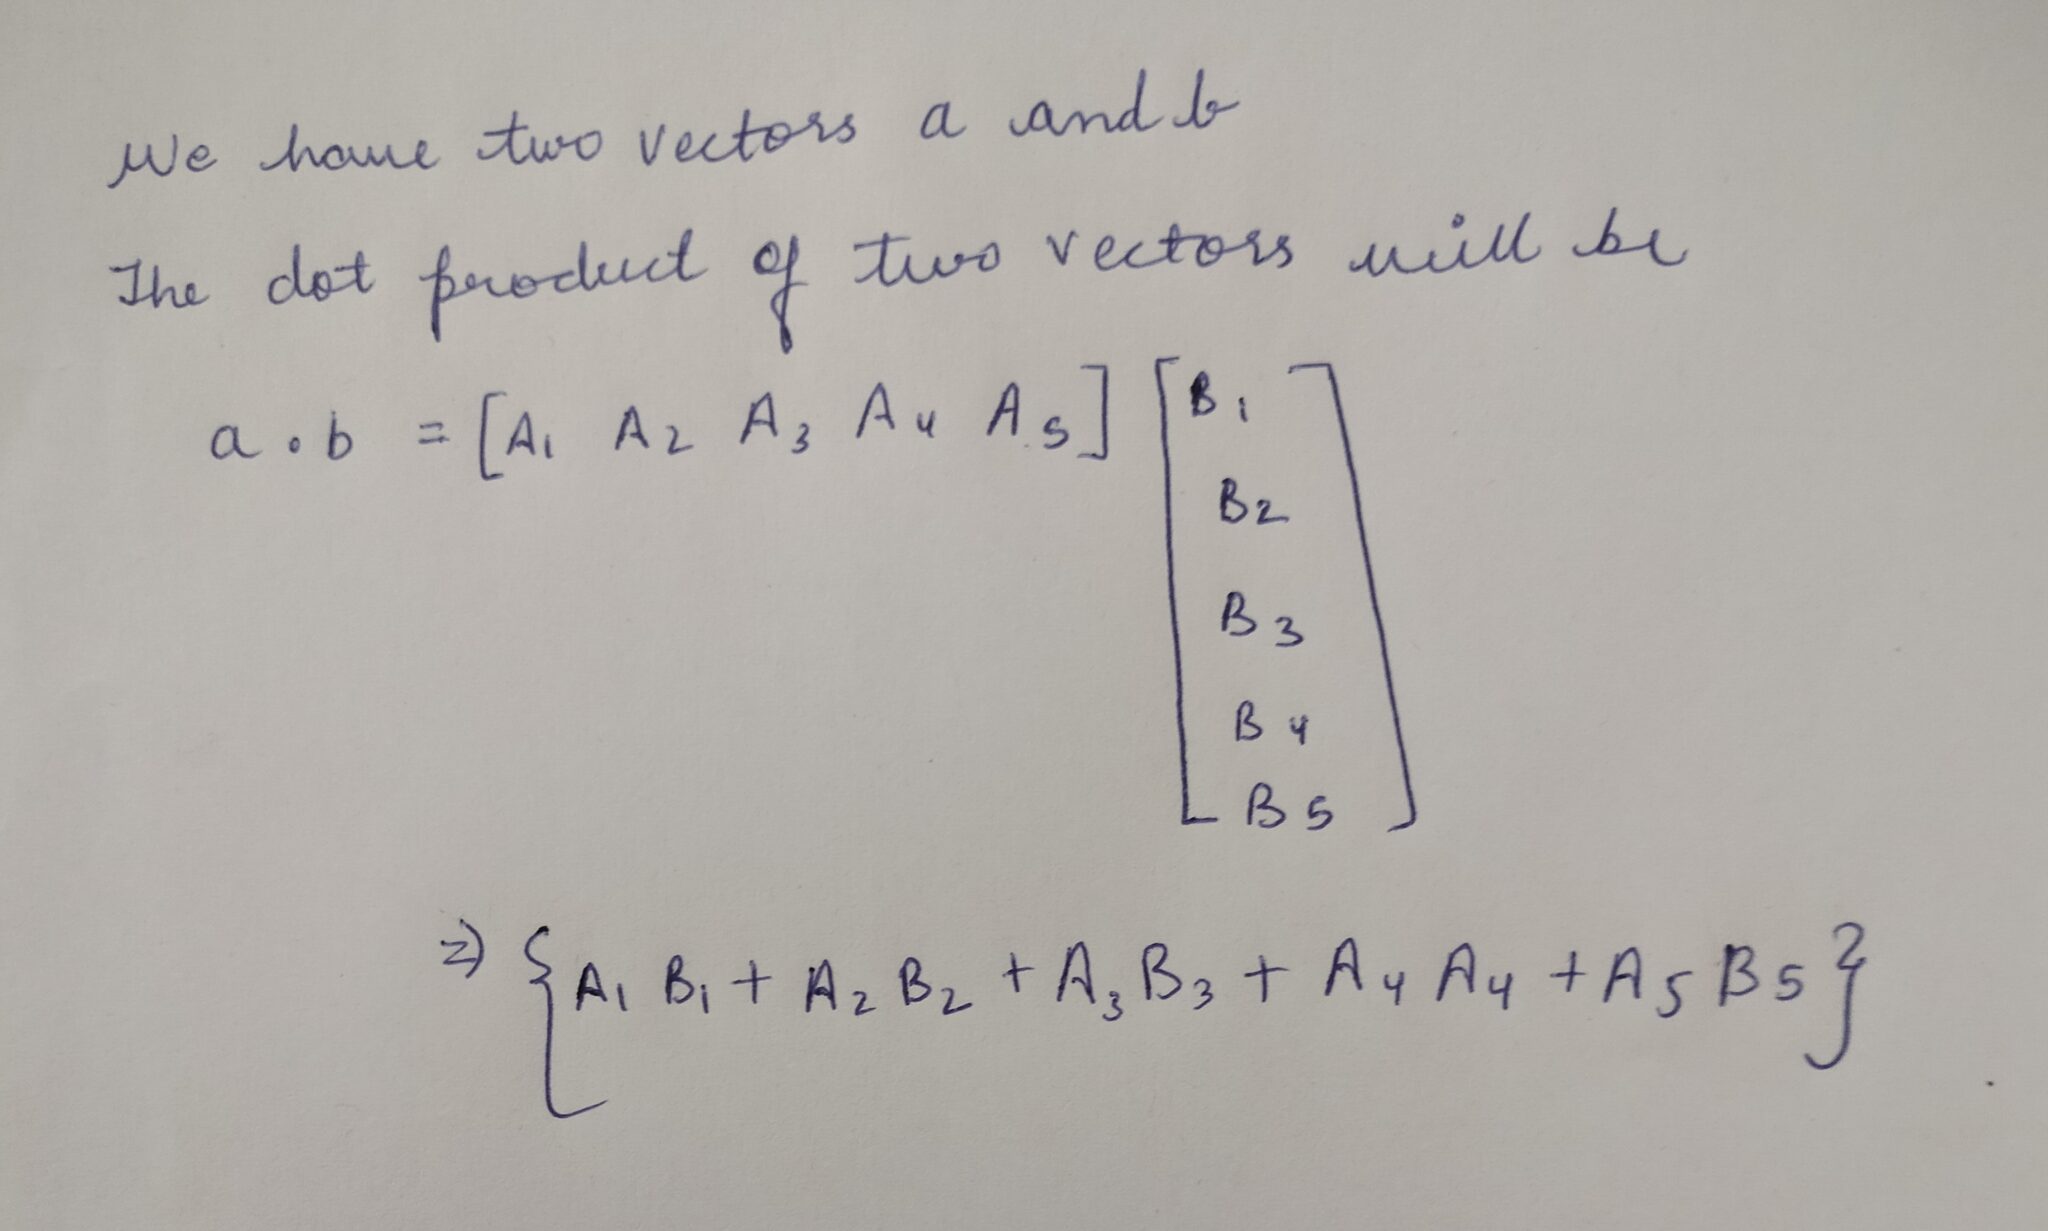 We have two vectors a and b
The dot product of two vectors will be
a . b = [A1 A2 A3 A4 A5] [B1
B2
B3
B4
B5]
=> {A1 B1 + A2 B2 + A3 B3 + A4 A4 + A5 B5}